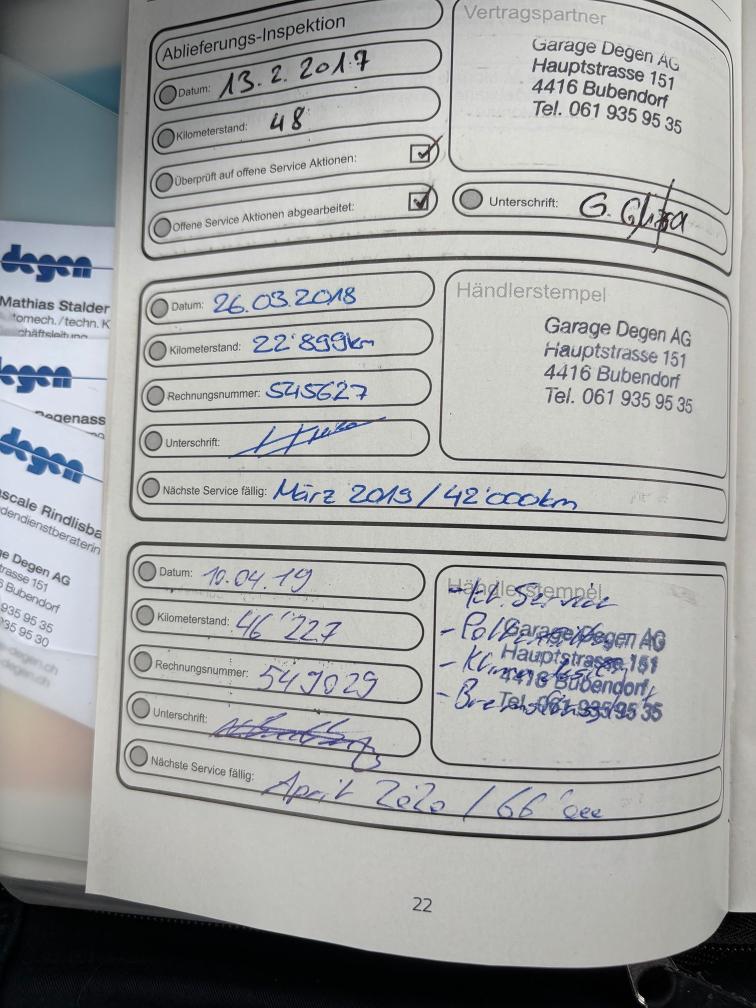 Ablieferungs-Inspektion
Datum: 13.2.2017
Kilometerstand: 48
Überprüft auf offene Service Aktionen:
Offene Service Aktionen abgearbeitet:
Vertragspartner
Garage Degen AG
Hauptstrasse 151
4416 Bubendorf
Tel. 061 935 95 35
Unterschrift: G.
Datum: 26.03.2018
Kilometerstand: 22'899km
Rechnungsnummer: 545627
Unterschrift:
Händlerstempel
Garage Degen AG
Hauptstrasse 151
4416 Bubendorf
Tel. 061 935 95 35
Nächste Service fällig: März 2019/42'000km
Datum: 10.04.19
Kilometerstand: 46'227
Rechnungsnummer: 549029
Unterschrift:
Händlerstempel
- kl. Service
Garage Degen AG
Hauptstrasse 151
4416 Bubendorf
Tel. 061 935 95 35
Nächste Service fällig: April 2020 / 66'000
22
degen
Mathias Stalder
tomech./techn. K
chäftsleitung
egen
degen
scale Rindlisba
dendienstberaterin
e Degen AG
trasse 151
6 Bubendorf
935 95 35
935 95 30
-degen.ch
-degen.ch